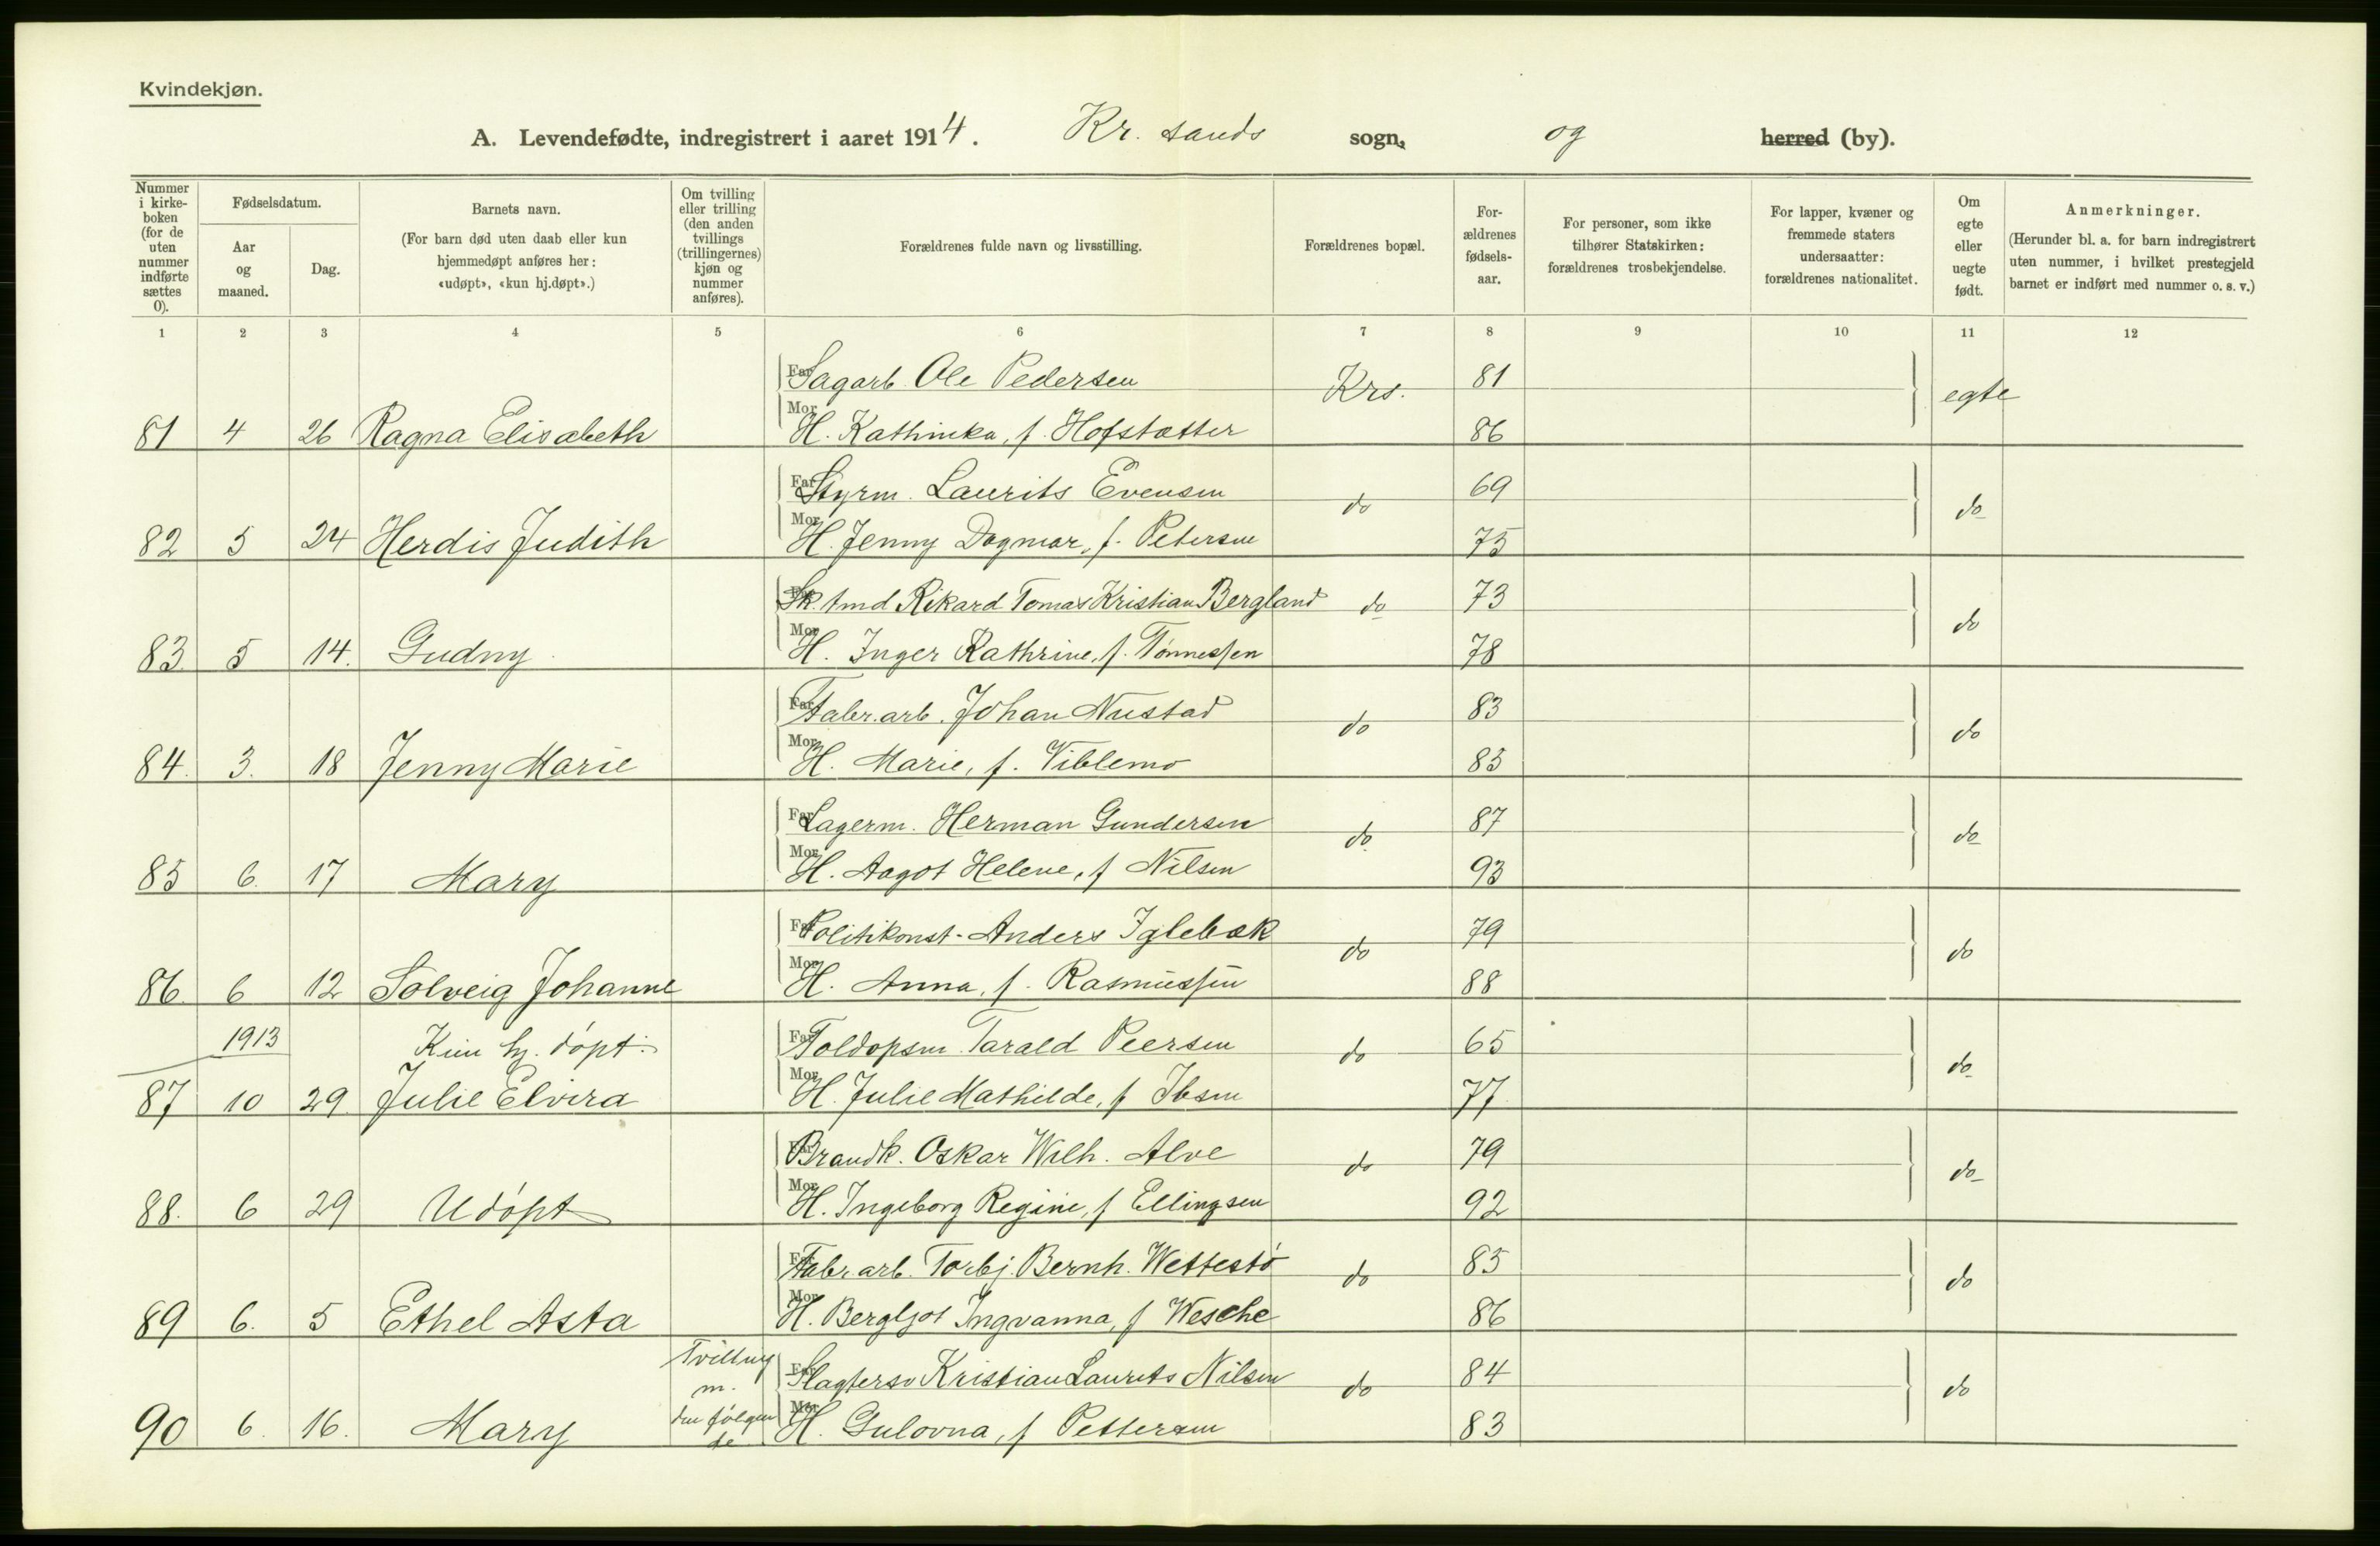 Kvindekjøn.
A. Levendefødte, indregistrert i aaret 1914. Kr. sands sogn, og herred (by).
Nummer i kirkeboken (for de uten nummer indførte sættes 0).
Fødselsdatum.
Aar og maaned.
Dag.
Barnets navn.
(For barn død uten daab eller kun hjemmedøpt anføres her: «udøpt», «kun hj.døpt».)
Om tvilling eller trilling (den anden tvillings (trillingernes) kjøn og nummer anføres).
Forældrenes fulde navn og livsstilling.
Forældrenes bopæl.
Forældrenes fødselsaar.
For personer, som ikke tilhører Statskirken: forældrenes trosbekjendelse.
For lapper, kvæner og fremmede staters undersaatter: forældrenes nationalitet.
Om egte eller uegte født.
Anmerkninger.
(Herunder bl. a. for barn indregistrert uten nummer, i hvilket prestegjeld barnet er indført med nummer o. s. v.)
1 2 3 4 5 6 7 8 9 10 11 12
Far Sagarb. Ole Pedersen Krs. 81 egte
81 4 26 Ragna Elisabeth Mor H. Kathinka, f. Hofstætter 86
Far Styrm. Laurits Evensen do 69 do
82 5 24 Herdis Judith Mor H. Jenny Dagmar, f. Petersen 75
Far Sk. tmd Rikard Tomas Kristian Bergland do 73 do
83 5 14. Gudny Mor H. Inger Kathrine, f. Tønnessen 78
Far Fabr.arb. Johan Nustad do 83 do
84. 3. 18 Jenny Marie Mor H. Marie, f. Viblemo 83
Far Lagerm. Herman Gundersen do 87 do
85 6. 17 Mary Mor H. Aagot Helene, f Nilsen 93
Far Politikonst. Anders Iglebæk do 79 do
86 6 12 Solveig Johanne Mor H. Anna, f. Rasmussen 88
1913 Kun hj. døpt: Far Toldopsm. Tarald Peersen do 65 do
87 10 29 Julie Elvira Mor H. Julie Mathilde, f Ibsen 77
Far Brandk. Oskar Wilh. Alve do 79 do
88. 6 29 Udøpt Mor H. Ingeborg Regine, f Ellingsen 92
Far Fabr.arb. Torbj. Bernh. Wettestø do 85 do
89 6. 5 Ethel Asta Mor H. Bergljot Ingvanna, f Wesche 86
Tvilling m. Far Slagtersv Kristian Laurits Nilsen do 84 do
90 6. 16. Mary den følgende Mor H. Gulovna, f Pettersen 83